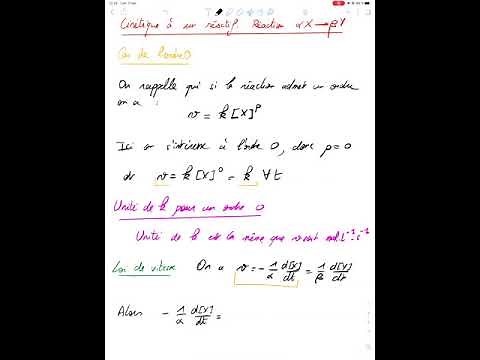 Cinétique à un réactif Réaction αX → βY
Cas de l'ordre 0
On rappelle que si la réaction admet un ordre
on a :
v = k [X]^p
Ici on s'intéresse à l'ordre 0, donc p = 0
v = k [X]^0 = k ∀t
Unité de k pour un ordre 0
Unité de k est la même que v soit mol.L^-1.s^-1
Loi de vitesse On a v = -1/α d[X]/dt = 1/β d[Y]/dt
Alors -1/α d[X]/dt =